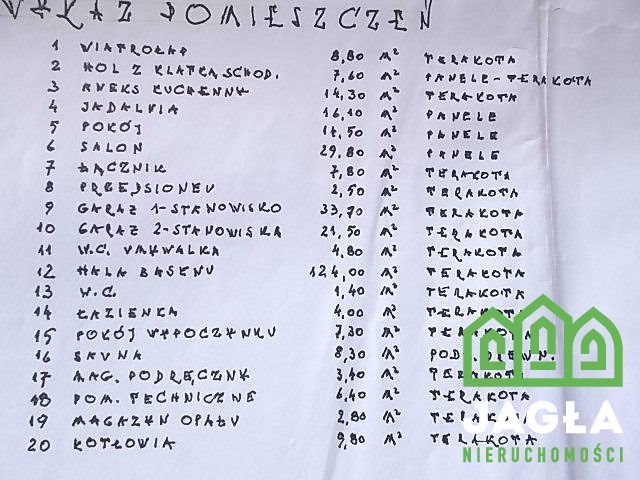 WYKAZ POMIESZCZEŃ
1 WIATROŁAP 8,80 M² TERAKOTA
2 HOL Z KLATKĄ SCHOD. 7,60 M² PANELE-TERAKOTA
3 ANEKS KUCHENNY 14,30 M² TERAKOTA
4 JADALNIA 16,10 M² PANELE
5 POKÓJ 14,50 M² PANELE
6 SALON 29,80 M² PANELE
7 ŁĄCZNIK 7,80 M² TERAKOTA
8 PRZEDSIONEK 2,50 M² TERAKOTA
9 GARAŻ 1-STANOWISKO 33,70 M² TERAKOTA
10 GARAŻ 2-STANOWISKA 21,50 M² TERAKOTA
11 W.C. UMYWALKA 4,80 M² TERAKOTA
12 HALA BASENU 124,00 M² TERAKOTA
13 W.C. 1,40 M² TERAKOTA
14 ŁAZIENKA 4,00 M² TERAKOTA
15 POKÓJ WYPOCZYNKU 7,30 M² TERAKOTA
16 SAUNA 8,30 M² PODŁ. DREWN.
17 MAG. PODRĘCZNY 3,40 M² TERAKOTA
18 POM. TECHNICZNE 6,40 M² TERAKOTA
19 MAGAZYN OPAŁU 2,80 M² TERAKOTA
20 KOTŁOWIA 9,80 M² TERAKOTA
JAGŁA
NIERUCHOMOŚCI